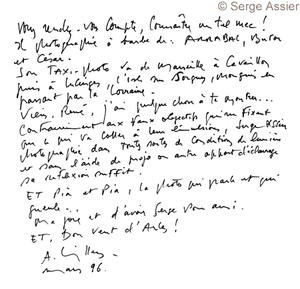 © Serge Assier
Vous rendez-vous compte, connaître un tel mec !
Il photographie à bande de : ARRABAL, Buton
et César.
Son Taxi-photo va de Marseille à Cavaillon
puis à l'isle sur Sorgues, en
passant par la Lorraine.
Viens, René, j'ai quelque chose à te montrer...
Contrairement aux faux objectifs qui en fixant
que ce qui va coller à leur émulsion, Serge Assier
photographie dans toute sorte de conditions de lumière
et sans l'aide de projo ou autre apport d'éclairage
sa réflexion suffit.
ET Pia et Pia, la photo qui parle et qui
gueule...
ma joie et d'avoir Serge pour ami.
ET, Bon vent d'Arles !
A.
mars 96.